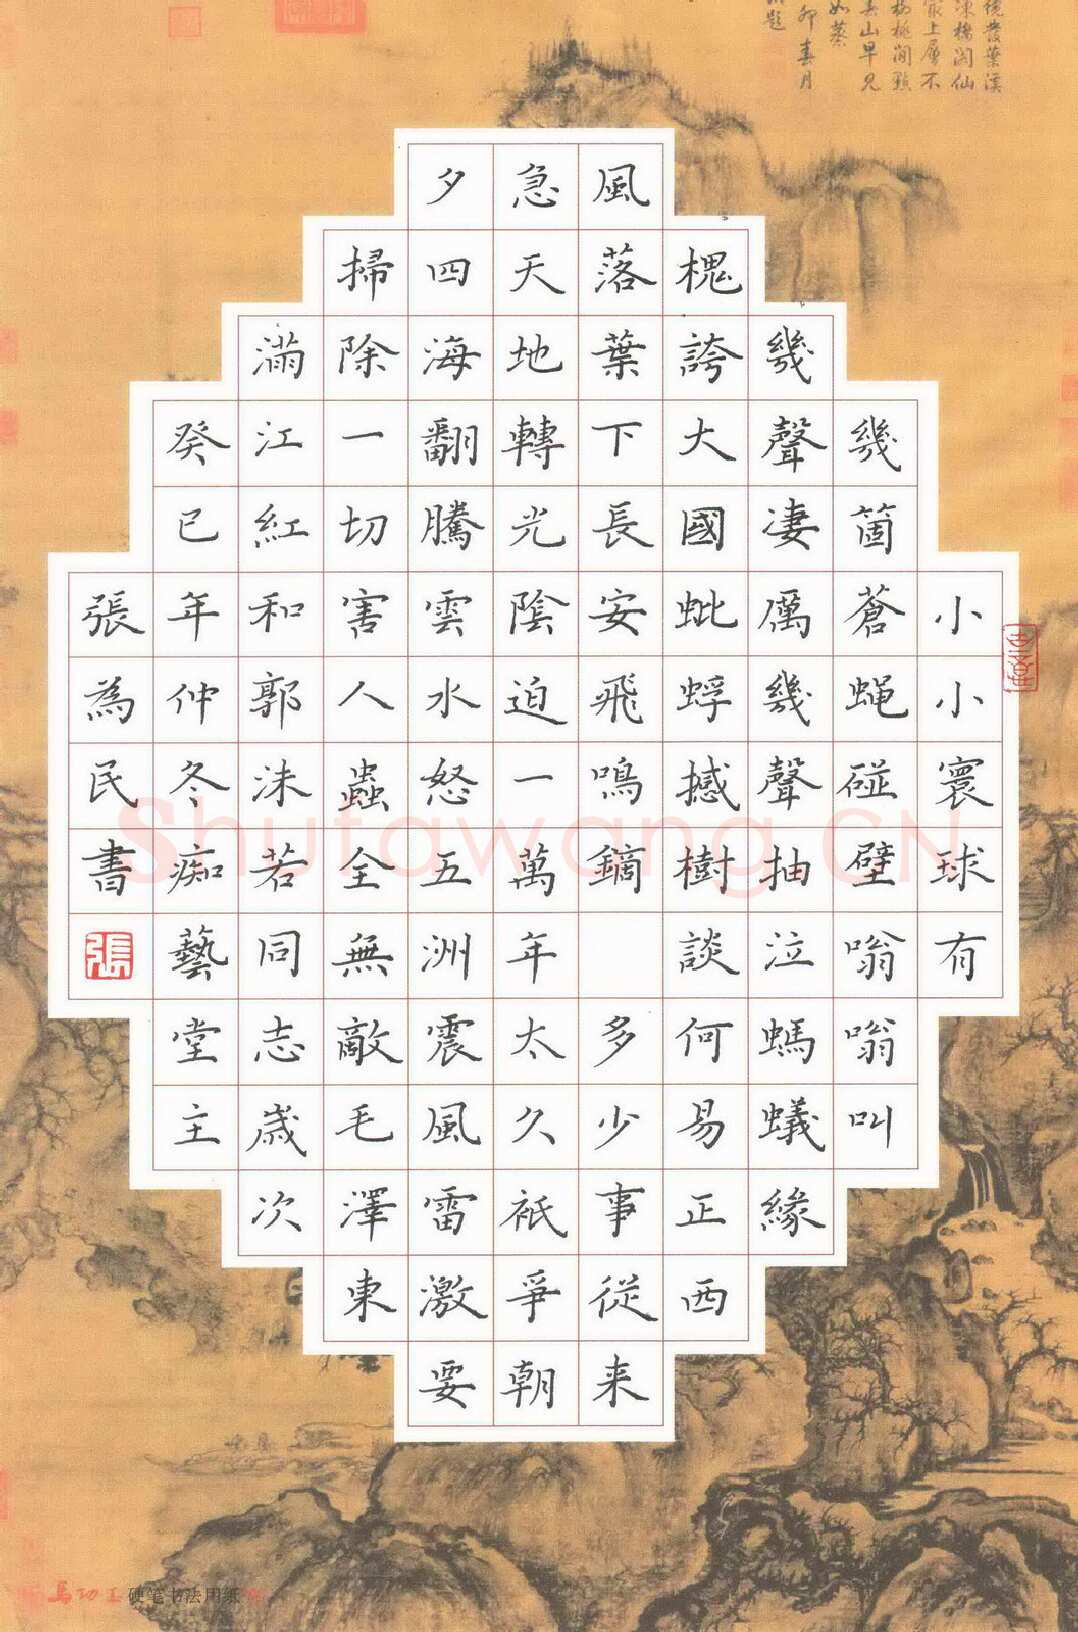 纔發葉溪
凍樓閣仙
上層不
桃閒點
山早見
如蒸
卯春月
題
小小寰球有
幾箇蒼蝇碰壁嗡嗡叫
幾聲凄厲幾聲抽泣螞蟻緣
槐誇大國蚍蜉撼樹談何易正西
風落葉下長安飛鳴鏑 多少事從来
急天地轉光陰迫一萬年太久祇爭朝
夕四海翻騰雲水怒五洲震風雷激要
掃除一切害人蟲全無敵毛澤東
滿江紅和郭沫若同志歲次
癸巳年仲冬痴藝堂主
張為民書
張
Shufawang.CN
硬笔书法用纸